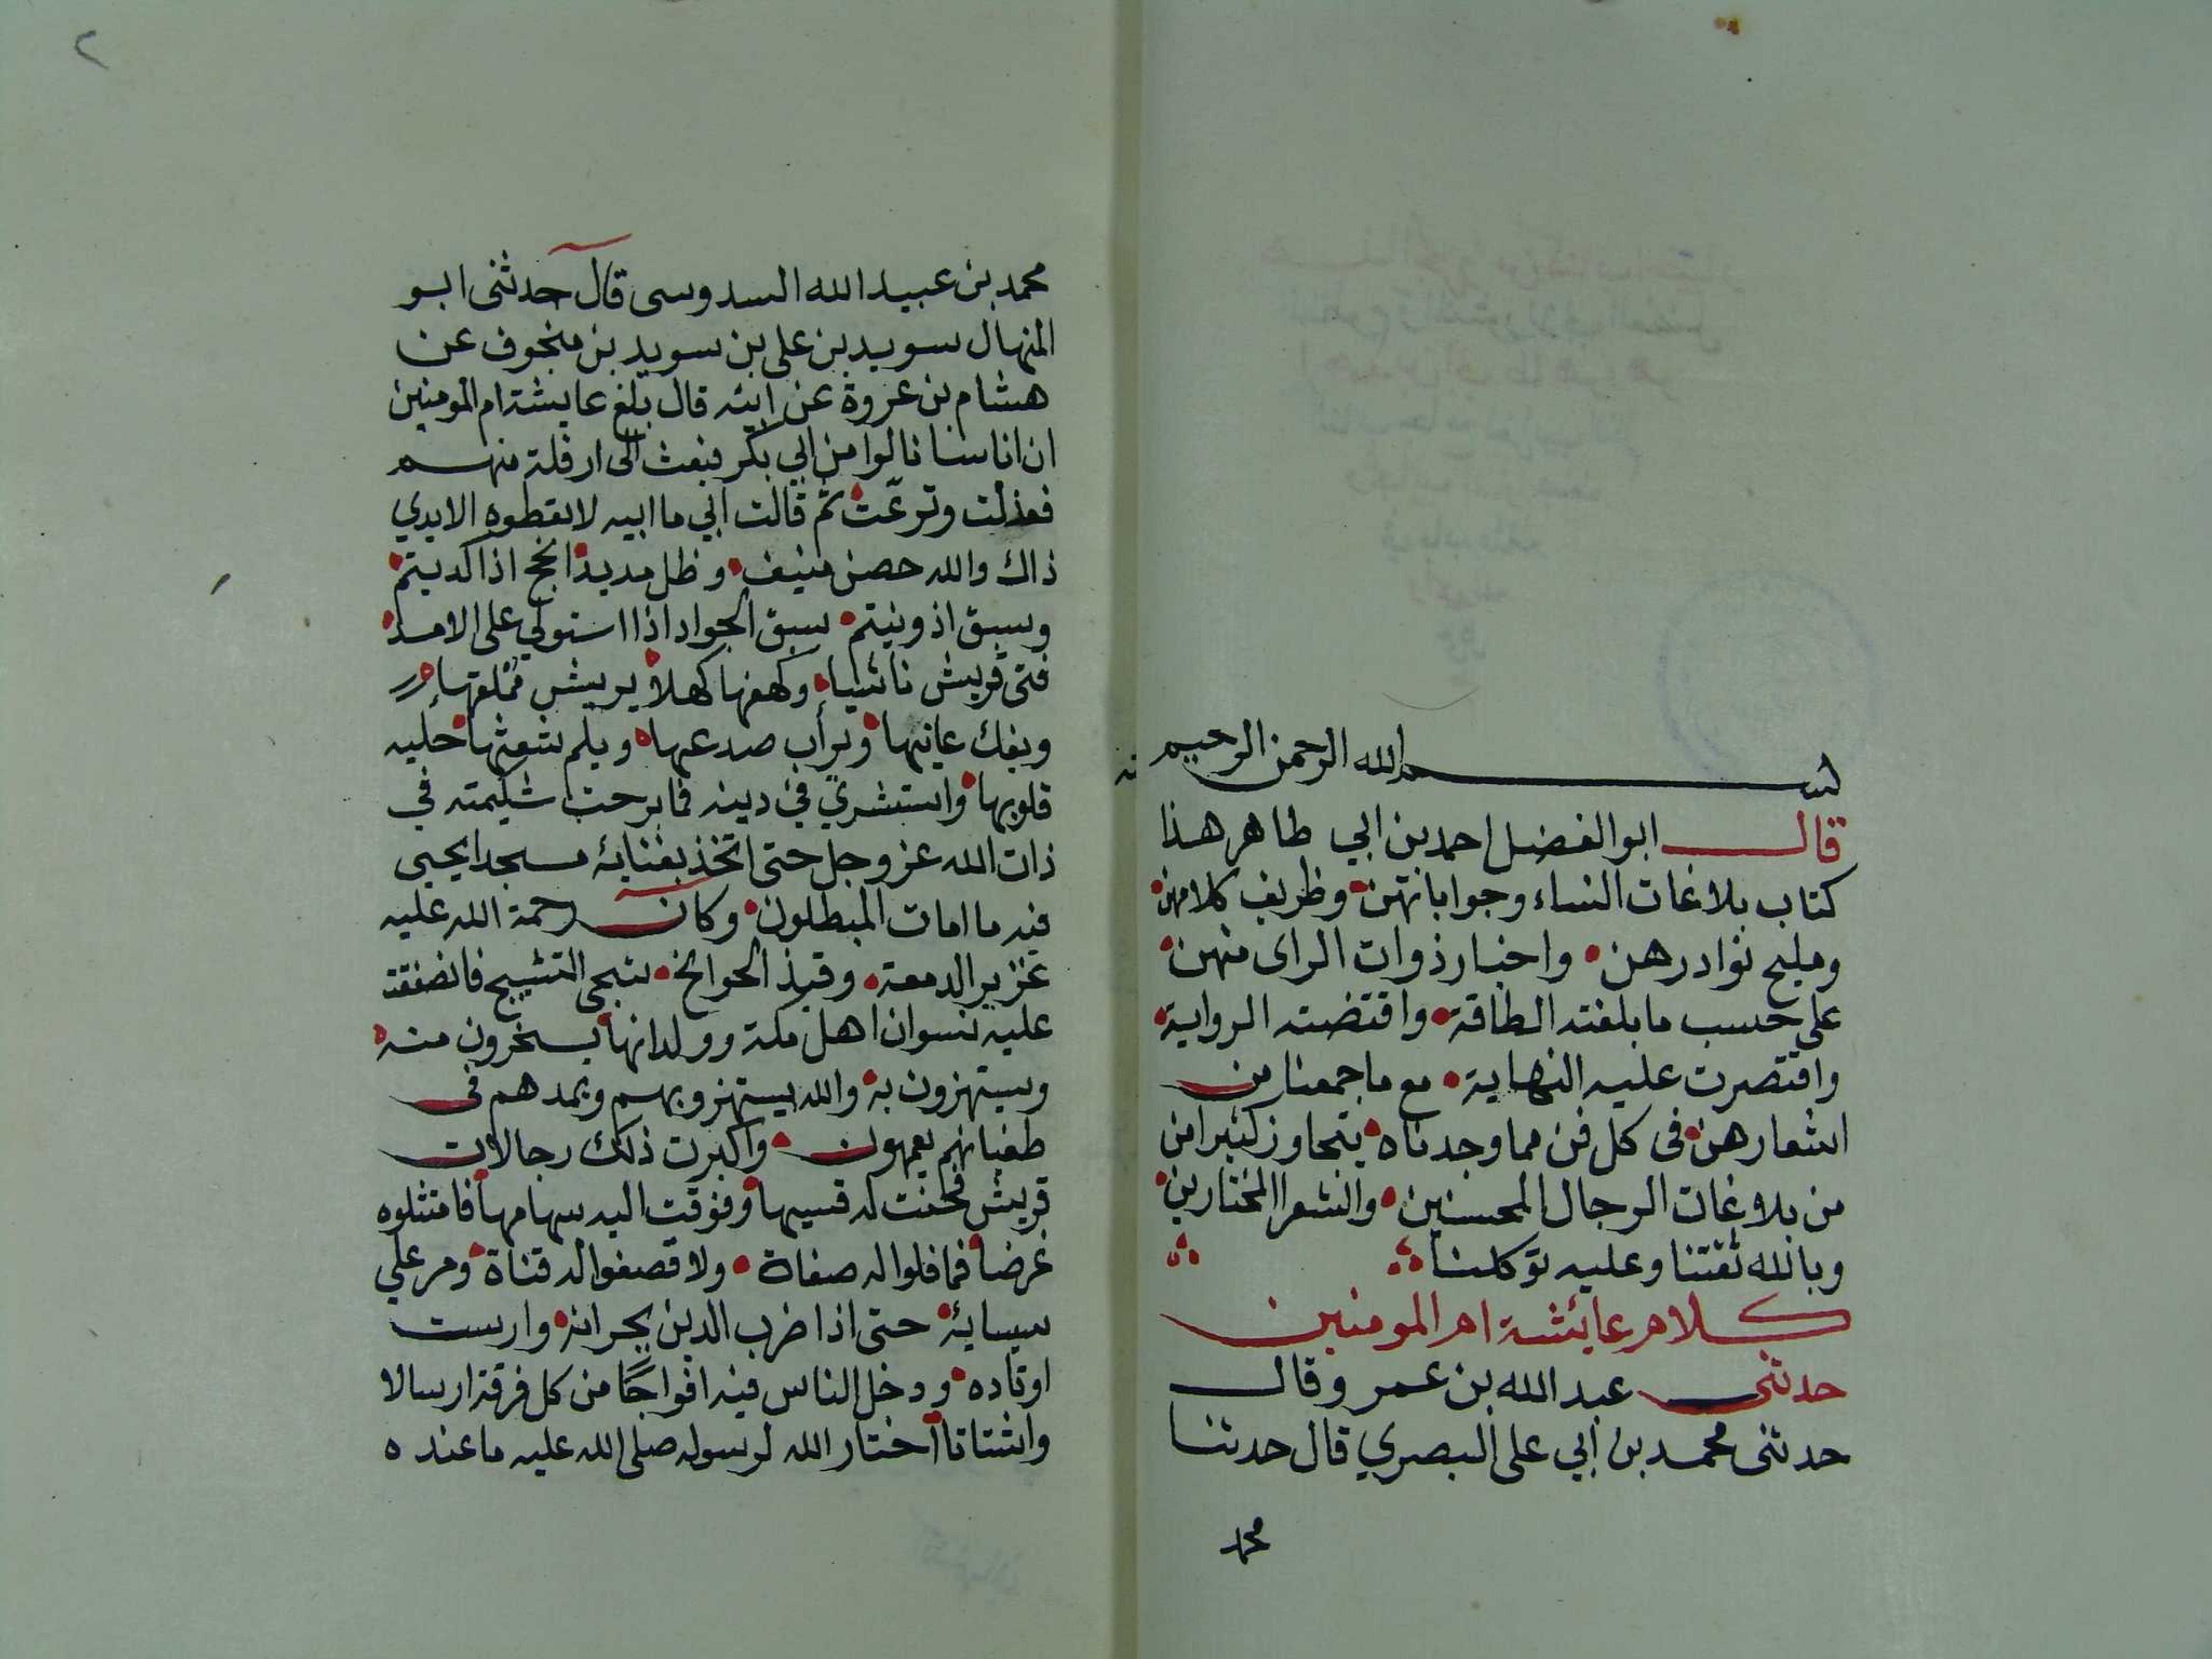 بسم الله الرحمن الرحيم
قال ابو الفضل احمد بن ابي طاهر هذا
كتاب بلاغات النساء وجواباتهن وظريف كلامهن
ومليح نوادرهن واخبار ذوات الراى منهن
على حسب ما بلغته الطاقة واقتضته الرواية
واقتصرت عليه النهاية مع ما جمعنا من
اشعارهن فى كل فن مما وجدناه يتجاوز كثيرا من
من بلاغات الرجال المحسنين والشعرا المختارين
وبالله ثقتنا وعليه توكلنا
كلام عايشة ام المومنين
حدثنى عبد الله بن عمر وقال
حدثنى محمد بن ابي على البصري قال حدثنا
محمد
٢
محمد بن عبيد الله السدوسى قال حدثنى ابو
المنهال سويد بن على بن سويد بن منجوف عن
هشام بن عروة عن ابيه قال بلغ عايشة ام المومنين
ان اناسا نالوا من ابي بكر فبعث الى ازفلة منهم
فعذلت وقرعت ثم قالت ابي ما ابيه لا تعطوه الايدي
ذاك والله حصن منيف وظل مديد انجح اذ اكديتم
وسبق اذ ونيتم سبق الجواد اذا استولي على الامد
فتى قريش ناشيا وكهفها كهلا يريش مملقها
ويفك عانيها ويرأب صدعها ويلم شعثها حليه
قلوبها واستشري في دينه فما برحت شكيمته في
ذات الله عز وجل حتى اتخذ بفنايه مسجدا يحيى
فيه ما امات المبطلون وكان رحمة الله عليه
غزير الدمعة وقيذ الجوانح شجى النشيج فانصفقت
عليه نسوان اهل مكة وولدانها يسخرون منه
ويستهزون به والله يستهزو بهم ويمدهم فى
طغيانهم يعمهون واكبرت ذلك رجالات
قريش فحنت له قسيها وفوقت اليه سهامها فامتثلوه
غرضا فما فلوا له صفاة ولا قصفوا له قناة ومر علي
سيسايه حتى اذا ضرب الدين بجرانه وارست
اوتاده ودخل الناس فيه افواجا من كل فرقة ارسالا
واشتاتا اختار الله لرسوله صلى الله عليه ما عنده